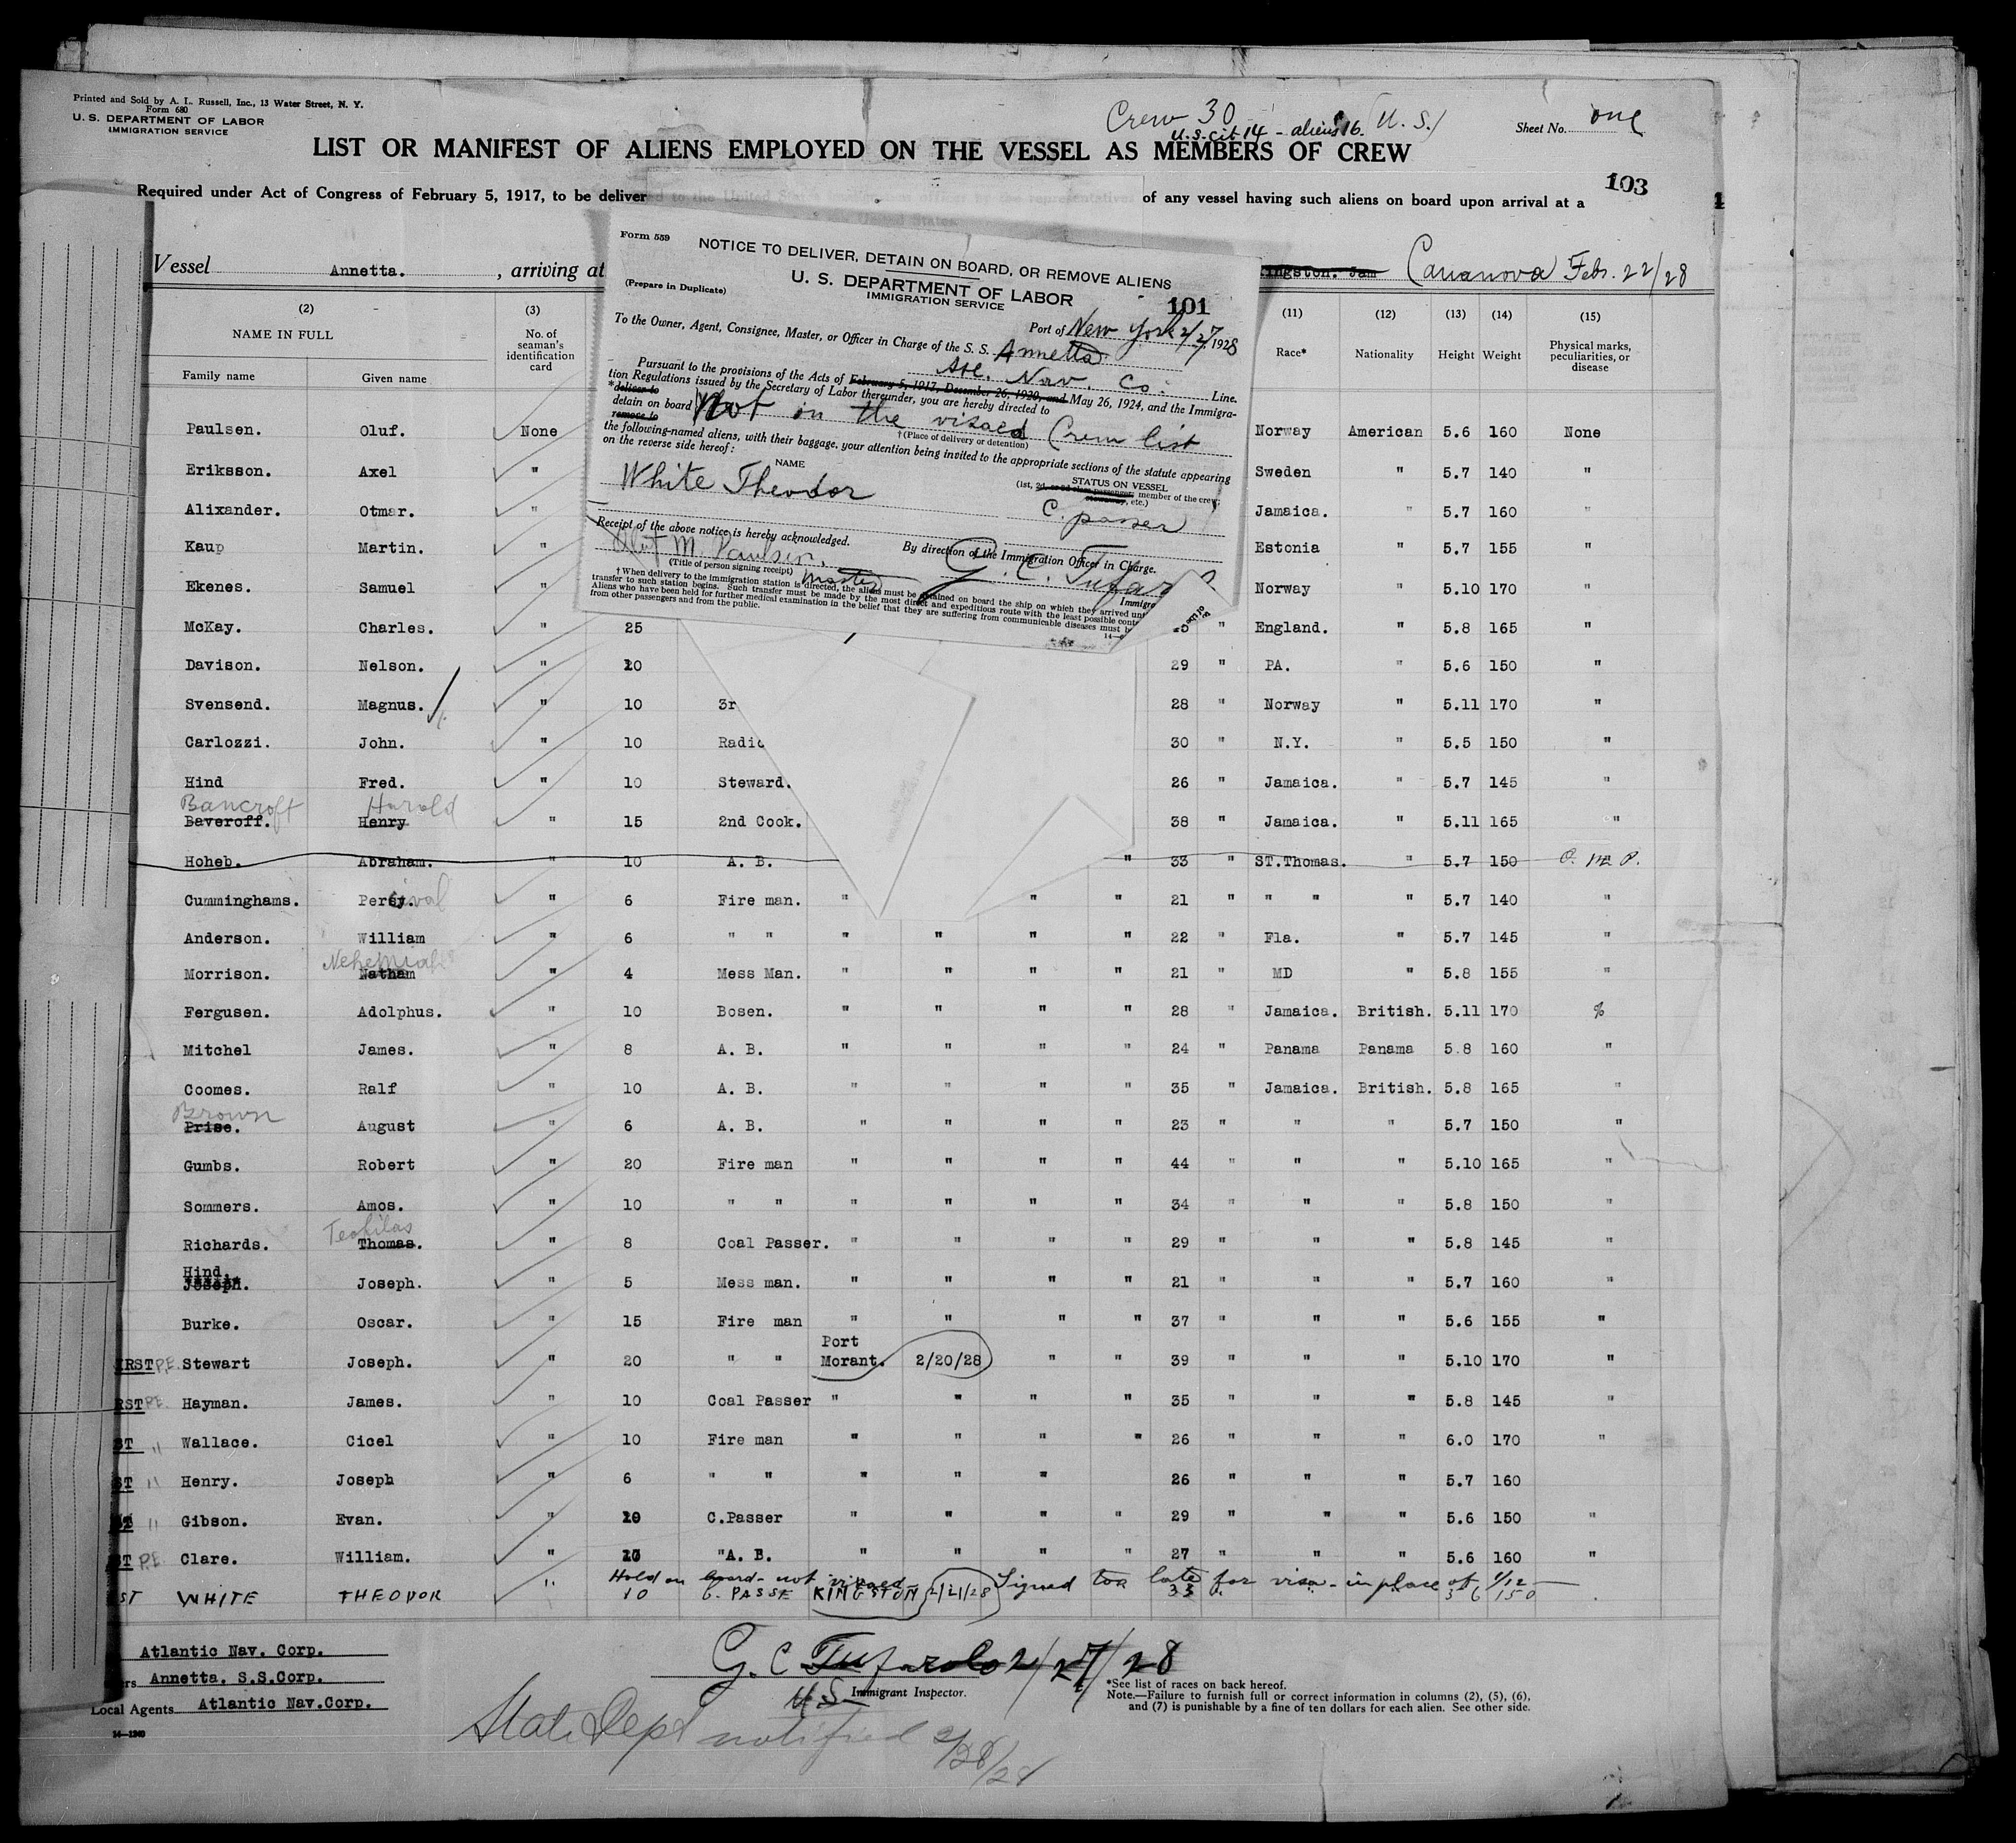 Printed and Sold by A. I. Russell, Inc., 13 Water Street, N. Y.
Form 680
U. S. DEPARTMENT OF LABOR
IMMIGRATION SERVICE
Crew 30
U.S. cit 14 - aliens 16. (U. S.)
Sheet No. one
LIST OR MANIFEST OF ALIENS EMPLOYED ON THE VESSEL AS MEMBERS OF CREW
103
Required under Act of Congress of February 5, 1917, to be deliver of any vessel having such aliens on board upon arrival at a
Vessel Annetta. , arriving at Kingston. Jam Cananova Feb. 22/28
Form 559
NOTICE TO DELIVER, DETAIN ON BOARD, OR REMOVE ALIENS
(Prepare in Duplicate)
U. S. DEPARTMENT OF LABOR
IMMIGRATION SERVICE
101
Port of New York 2/27, 1928
To the Owner, Agent, Consignee, Master, or Officer in Charge of the S. S. Annetta
Atl. Nav. Co. Line.
Pursuant to the provisions of the Acts of February 5, 1917, December 26, 1920, and May 26, 1924, and the Immigra-
tion Regulations issued by the Secretary of Labor thereunder, you are hereby directed to
*deliver to
detain on board Not on the visaed Crew list
remove to
†(Place of delivery or detention)
the following-named aliens, with their baggage, your attention being invited to the appropriate sections of the statute appearing
on the reverse side hereof:
NAME
STATUS ON VESSEL
(1st, 2d, or 3d class passenger, member of the crew,
stowaway, etc.)
White Theodor C. passer
Receipt of the above notice is hereby acknowledged.
By direction of the Immigration Officer in Charge.
Oluf M. Paulsen. G. C. Tufar
(Title of person signing receipt) Master
Immigra
† When delivery to the immigration station is directed, the aliens must be retained on board the ship on which they arrived unt
transfer to such station begins. Such transfer must be made by the most direct and expeditious route with the least possible cont
Aliens who have been held for further medical examination in the belief that they are suffering from communicable diseases must b
from other passengers and from the public.
(2) (3) (11) (12) (13) (14) (15)
NAME IN FULL No. of seaman's identification card Race* Nationality Height Weight Physical marks, peculiarities, or disease
Family name Given name
Paulsen. Oluf. None Norway American 5.6 160 None
Eriksson. Axel " Sweden " 5.7 140 "
Alixander. Otmar. " Jamaica. " 5.7 160 "
Kaup Martin. " Estonia " 5.7 155 "
Ekenes. Samuel " Norway " 5.10 170 "
McKay. Charles. " 25 " England. " 5.8 165 "
Davison. Nelson. " 20 29 " PA. " 5.6 150 "
Svensend. Magnus. " 10 3r 28 " Norway " 5.11 170 "
Carlozzi. John. " 10 Radio 30 " N.Y. " 5.5 150 "
Hind Fred. " 10 Steward. 26 " Jamaica. " 5.7 145 "
Bancroft Harold
Baveroff. Henry " 15 2nd Cook. 38 " Jamaica. " 5.11 165 "
Hoheb. Abraham. " 10 A. B. " 33 " ST.Thomas. " 5.7 150
Cumminghams. Percival " 6 Fire man. " " " 21 " " " " 5.7 140 "
Anderson. William " 6 " " " " " " 22 " Fla. " 5.7 145 "
Nehemiah
Morrison. Natham " 4 Mess Man. " " " " 21 " MD " 5.8 155 "
Fergusen. Adolphus. " 10 Bosen. " " " " 28 " Jamaica. British. 5.11 170
Mitchel James. " 8 A. B. " " " " 24 " Panama Panama 5.8 160 "
Coomes. Ralf " 10 A. B. " " " " 35 " Jamaica. British. 5.8 165 "
Brown
Prise. August " 6 A. B. " " " " 23 " " " 5.7 150 "
Gumbs. Robert " 20 Fire man " " " " 44 " " " 5.10 165 "
Sommers. Amos. " 10 " " " " " " 34 " " " 5.8 150 "
Teofilas
Richards. Thomas. " 8 Coal Passer. " " " " 29 " " " 5.8 145 "
Hind.
Joseph. Joseph. " 5 Mess man. " " " " 21 " " " 5.7 160 "
Burke. Oscar. " 15 Fire man " " " " 37 " " " 5.6 155 "
IRST P.E. Stewart Joseph. " 20 " " Port Morant. 2/20/28 " " 39 " " " 5.10 170 "
RST P.E. Hayman. James. " 10 Coal Passer " " " " 35 " " " 5.8 145 "
ST " Wallace. Cicel " 10 Fire man " " " " 26 " " " 6.0 170 "
ST " Henry. Joseph " 6 " " " " " 26 " " " 5.7 160
ST " Gibson. Evan. " 10 C.Passer " " " " 29 " " " 5.6 150 "
ST P.E. Clare. William. " "A. B. " " " " 27 " " " 5.6 160 "
Hold on board - not visaed - Signed too late for visa - in place of 1/12
ST WHITE THEODOR " 10 C. PASSE KINGSTON 2/21/28 33 5 6 150
Atlantic Nav. Corp.
rs Annetta. S.S.Corp.
Local Agents Atlantic Nav.Corp.
14—1240
G. C Tufarolo 2/27/28
U.S. Immigrant Inspector.
*See list of races on back hereof.
Note.—Failure to furnish full or correct information in columns (2), (5), (6),
and (7) is punishable by a fine of ten dollars for each alien. See other side.
State Dept notified 2/28/28